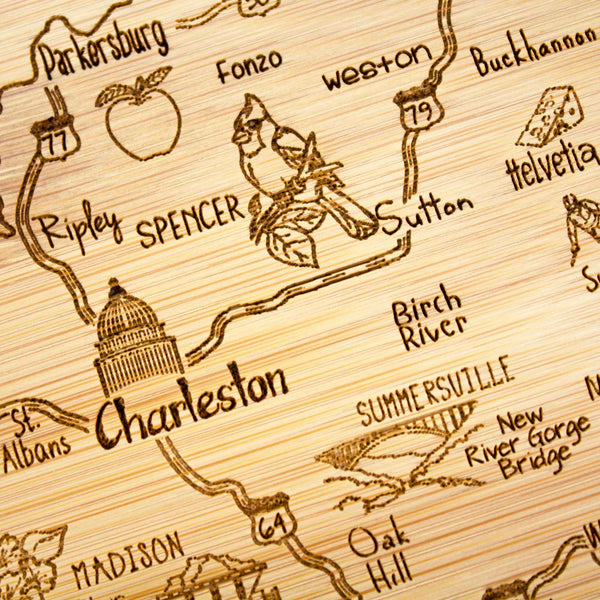 50
Parkersburg
Fonzo
Weston
Buckhannon
77
79
Helvetia
Ripley
SPENCER
Sutton
Birch
River
Charleston
SUMMERSVILLE
New
River Gorge
Bridge
St.
Albans
64
Oak
Hill
MADISON